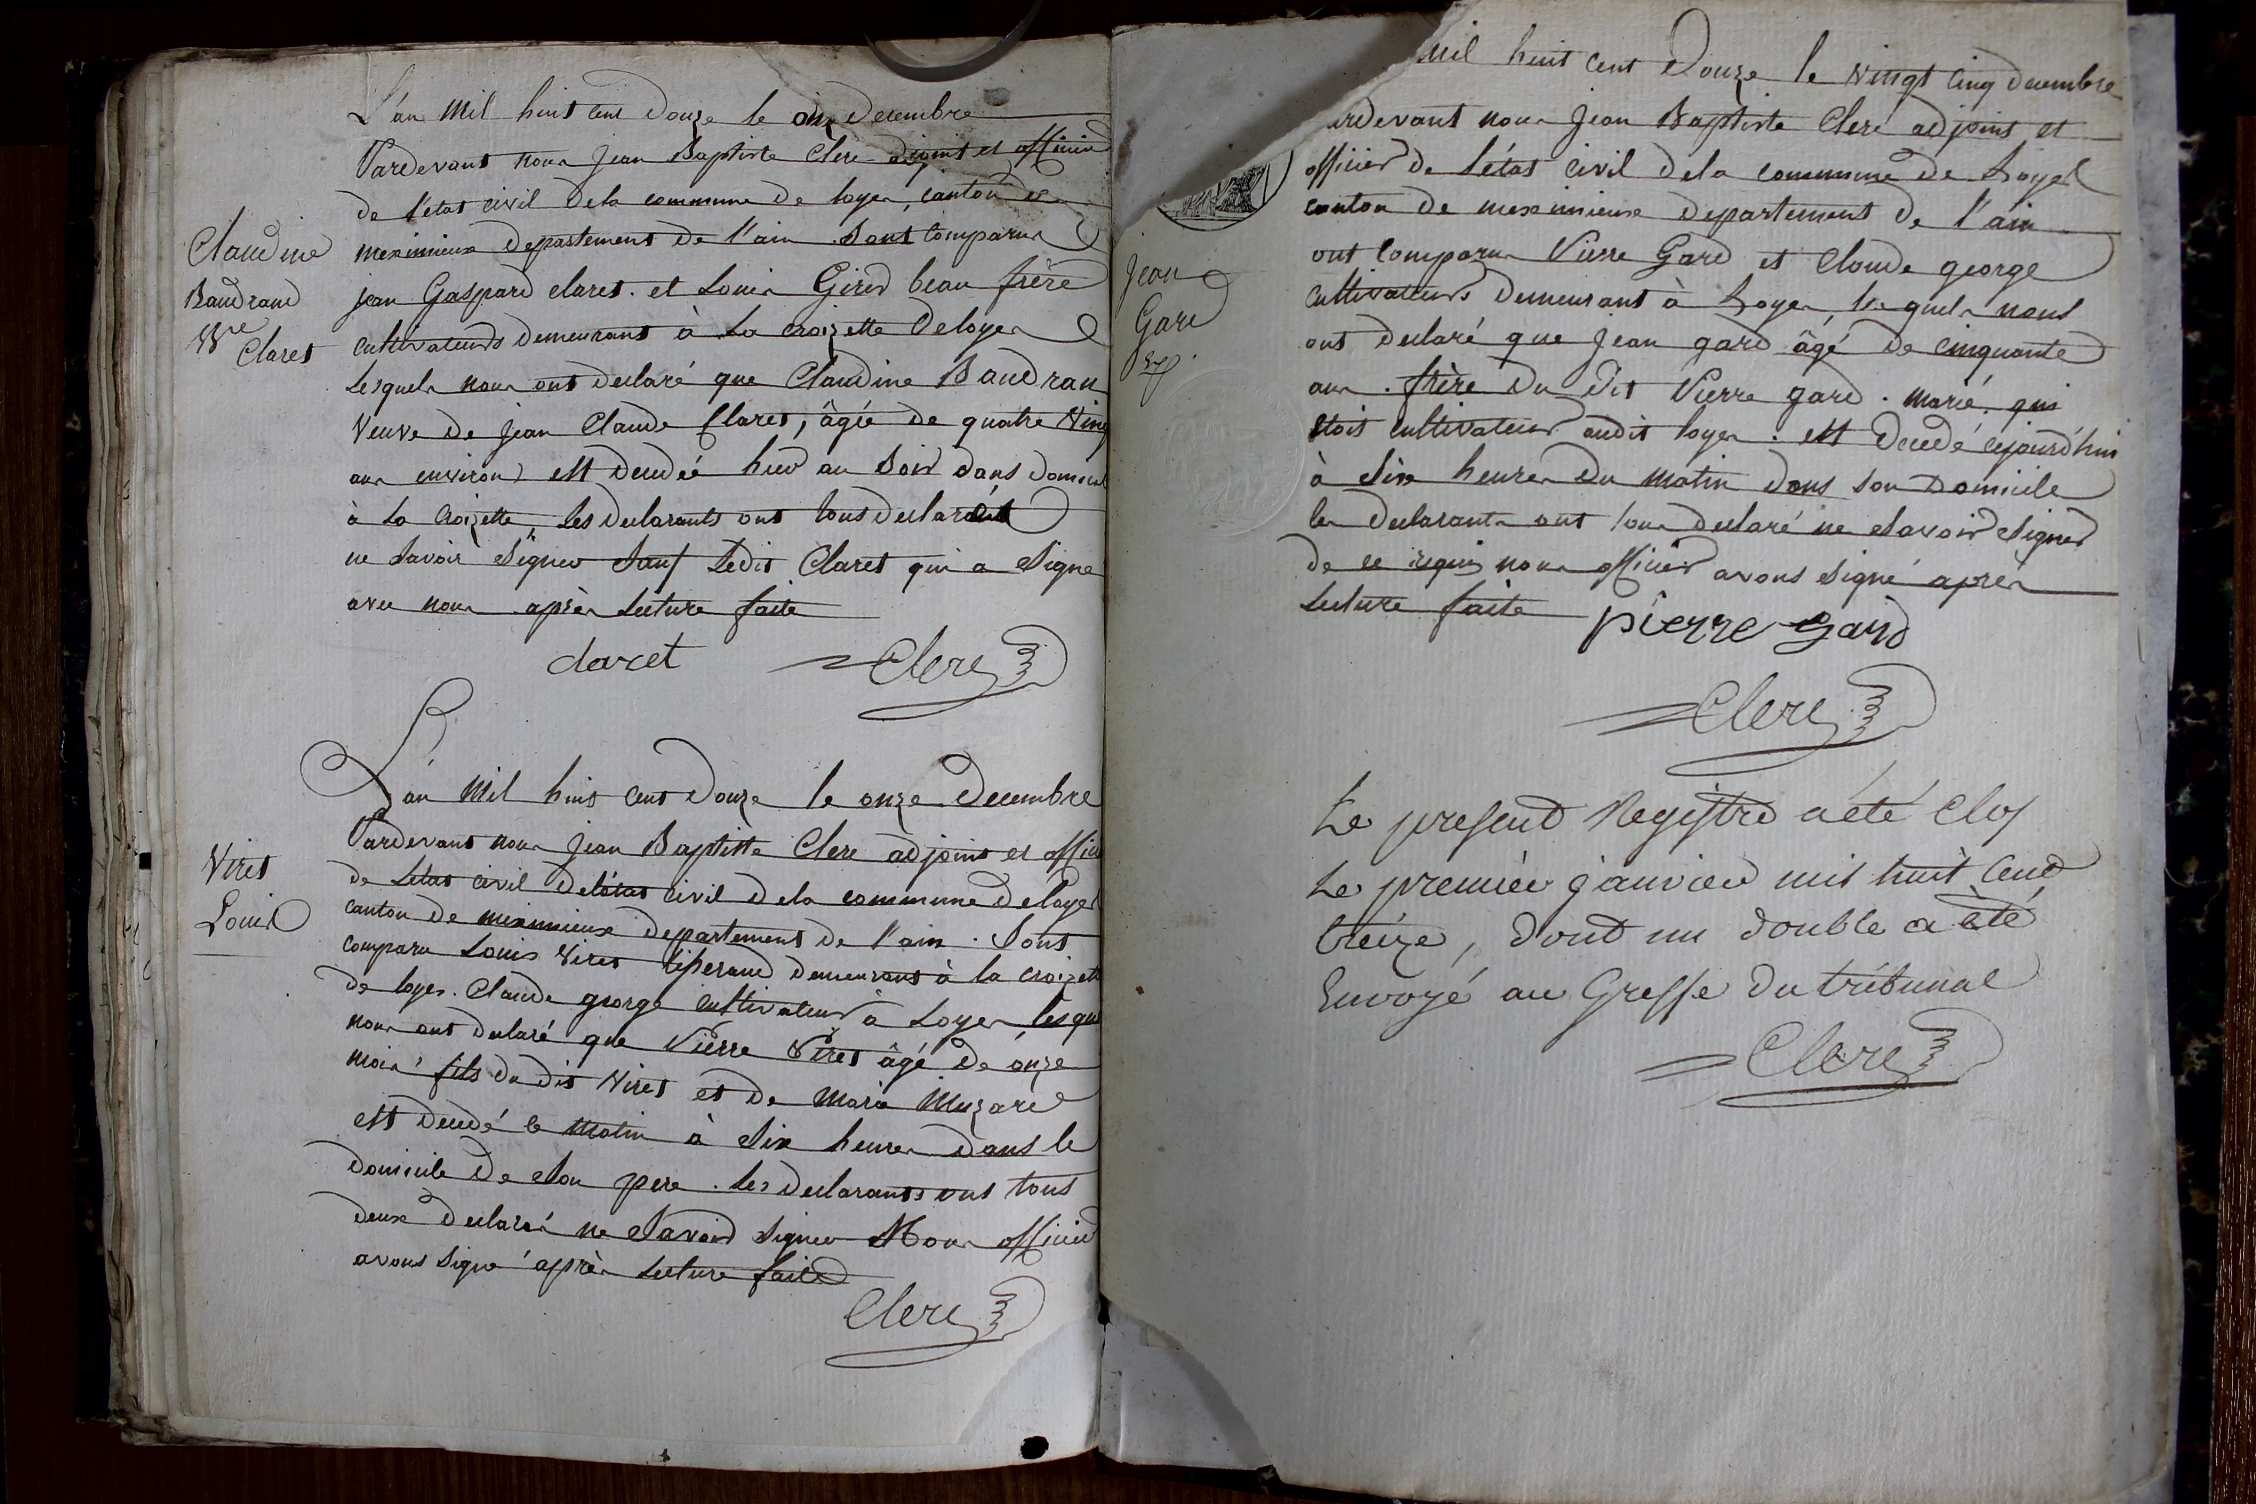 L'an mil huit cent douze le onze decembre
Pardevant nous Jean Baptiste Clerc adjoint et officier
de l'état civil dela commune de loyes, canton de
meximieux departement de l'ain. Sont Comparus
Claudine
Baudrand
Vve Claret
jean Gaspard claret. et Louis Girer beau frère
cultivateurs demeurants à La croizette deloyes
Lesquels nous ont declaré que Claudine Baudran
Veuve de jean Claude Claret, âgée de quatre Ving
ans environ est decedée hier au Soir dans domicil
à La Croizette, Les declarants ont tous declaré
ne Savoir Signer Sauf Ledit Claret qui a Signé
avec nous après Lecture faite
claret Clerc
L'an Mil huit cent douze le onze decembre
Pardevant nous Jean Baptiste Clerc adjoint et offici
de Létat civil delétat civil dela commune de loyes
Viret
Louis
canton de meximieux departement de l'ain. Sont
comparu Louis Viret demeurant à la croizett
de loyes. Claude george cultivateur à Loyes lesque
nous ont declaré que Pierre Viret âgé de onze
mois fils du dit Viret et de marie Muzard
est decedé le matin à Six heures dans le
domicile de son pere. Les declarants ont tous
deux declaré ne Savoir Signer Nous officier
avons signé après Lecture faite
Clerc
mil huit cent Douze le vingt cinq decembre
ardevant nous Jean Baptiste Clerc adjoint et
officier de L'état civil dela commune de Loyes
canton de meximieux departement de l'ain
ont comparus Pierre Gard et Claude george
Jean
Gard
cultivateurs demeurant à Loyes, lesquels nous
ont declaré que Jean gard âgé de cinquante
ans. frère du dit Pierre gard. marié. qui
etoit cultivateur audit loyes. est decedé cejourd'hui
à Six heures du matin dans son domicile
les declarants ont tous declaré ne savoir signer
de ce requis nous officier avons signé après
Lecture faite pierre gard
Clerc
Le present Registre a été Clos
Le premier janvier mil huit Cent
treize, dont un double a été
Envoyé au Greffe du tribunal
Clerc